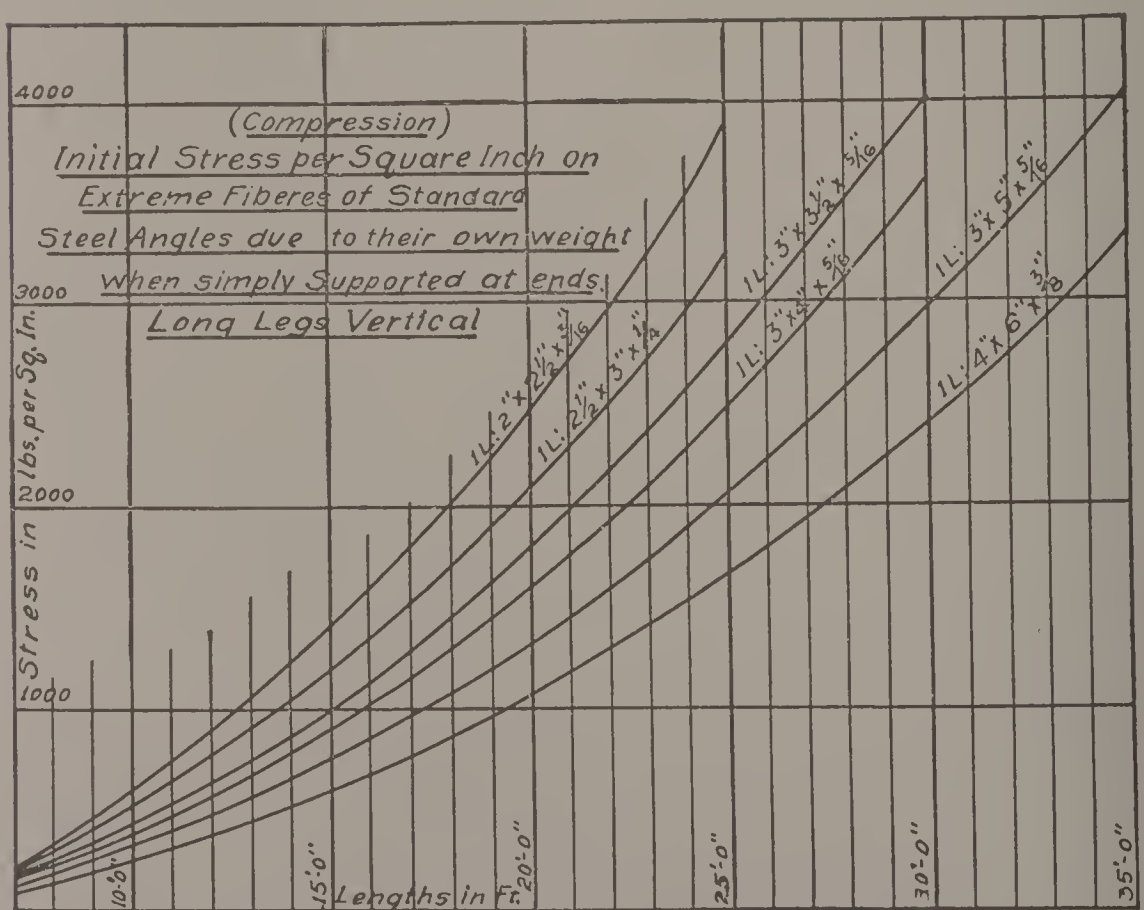 4000
(Compression)
Initial Stress per Square Inch on
Extreme Fiberes of Standard
Steel Angles due to their own weight
when simply Supported at ends.
Long Legs Vertical
3000
2000
1000
Stress in lbs. per Sq. In.
1L: 2" x 2½" x 3/16"
1L: 2½" x 3" x ¼"
1L: 3" x 3½" x 5/16"
1L: 3" x 4" x 5/16"
1L: 3" x 5" x 5/16"
1L: 4" x 6" x 3/8"
10'-0"
15'-0"
Lengths in Ft.
20'-0"
25'-0"
30'-0"
35'-0"